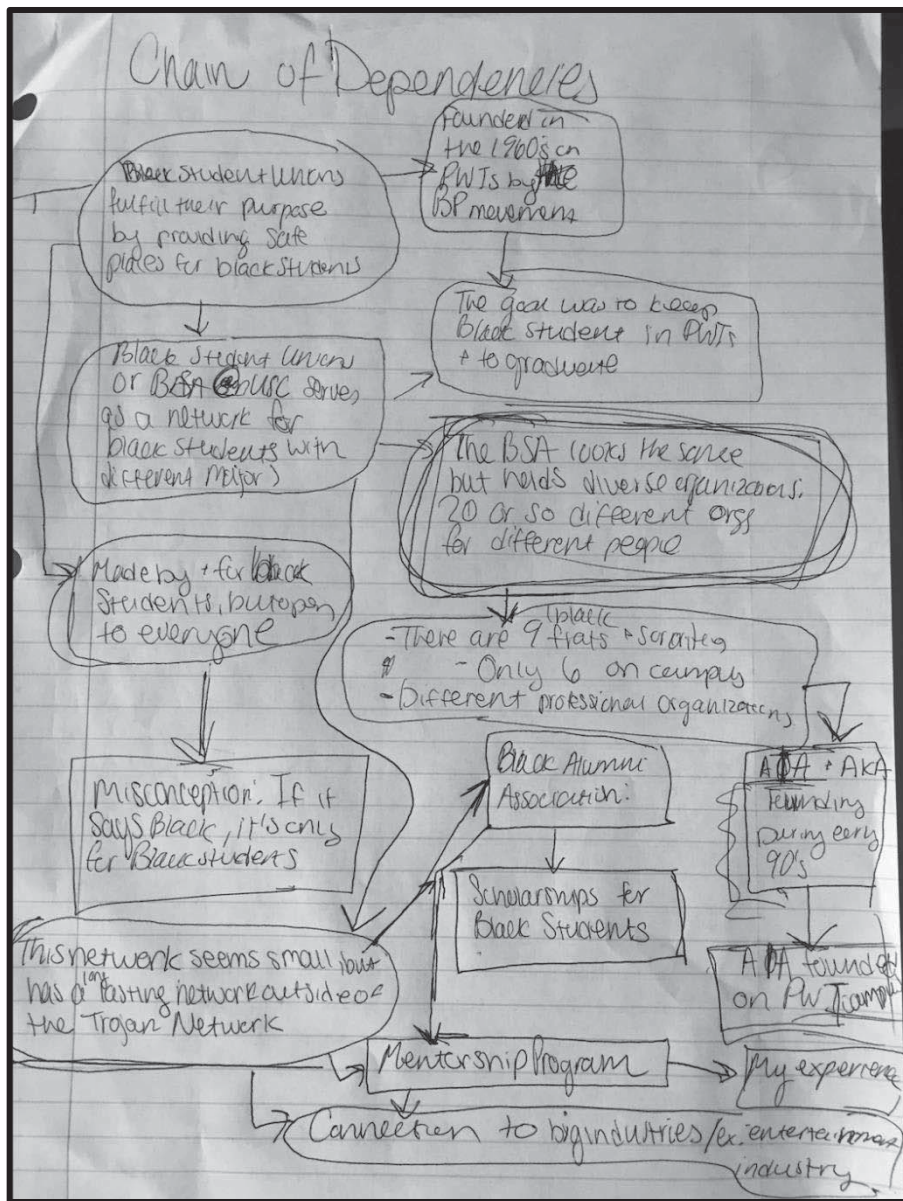 Chain of Dependencies
Black Student Unions
fulfill their purpose
by providing safe
places for black students
Founded in
the 1960's on
PWIs by the
BP movement
The goal was to keep
Black student in PWIs
+ to graduate
Black Student Unions
or BSA @ USC serves
as a network for
black students with
different major)
The BSA looks the same
but holds diverse organizations.
20 or so different orgs
for different people
Made by + for black
Students, but open
to everyone
- There are 9 black frats + sororities
- Only 6 on campus
- Different professional organizations
Misconception: If it
says Black, it's only
for Black students
Black Alumni
Association:
Scholarships for
Black Students
+ AKA
founding
During early
90's
founded
on PWI campus
This network seems small but
has a long lasting network outside of
the Trojan Network
Mentorship Program
My experience
Connection to big industries/ex: entertainment
industry